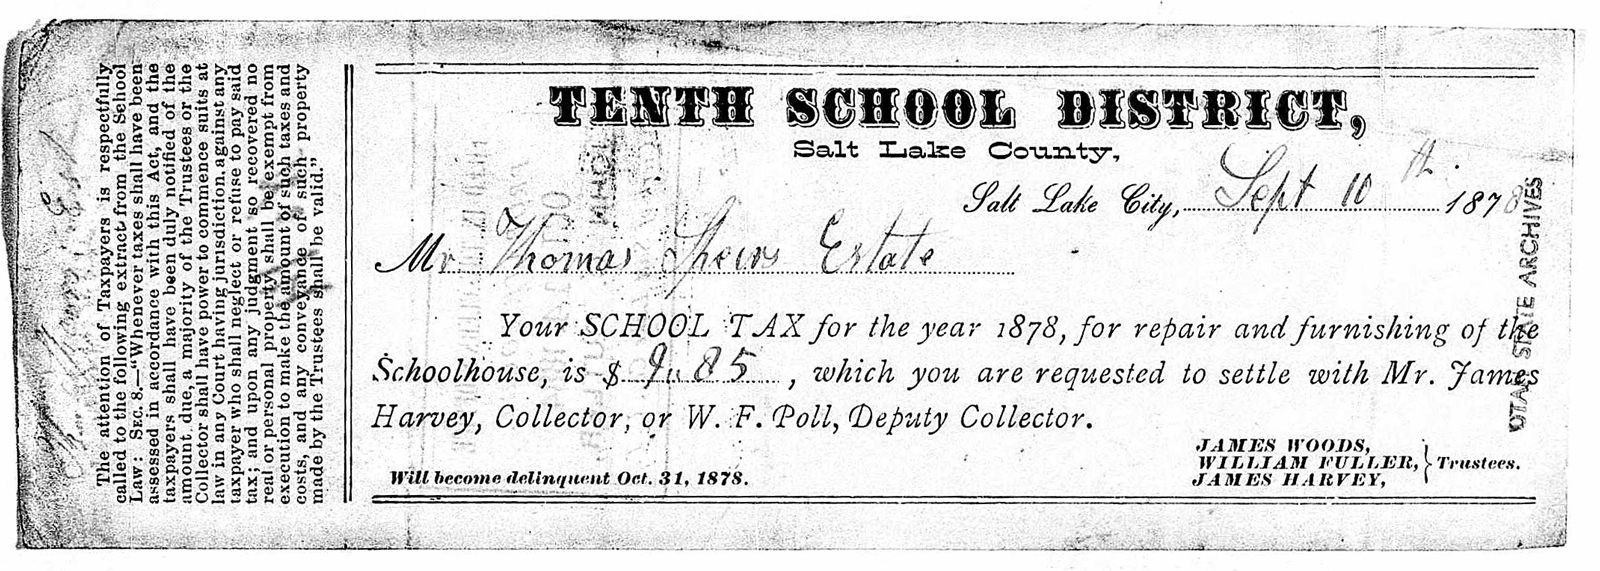 The attention of Taxpayers is respectfully
called to the following extract from the School
Law: SEC. 8.—"Whenever taxes shall have been
assessed in accordance with this Act, and the
taxpayers shall have been duly notified of the
amount due, a majority of the Trustees or the
Collector shall have power to commence suits at
law in any Court having jurisdiction, against any
taxpayer who shall neglect or refuse to pay said
tax; and upon any judgment so recovered no
real or personal property shall be exempt from
execution to make the amount of such taxes and
costs, and any conveyance of such property
made by the Trustees shall be valid."
TENTH SCHOOL DISTRICT,
Salt Lake County,
Salt Lake City, Sept 10 th 1878
Mr Thomas Estate
Your SCHOOL TAX for the year 1878, for repair and furnishing of the
Schoolhouse, is $ 9.. 85, which you are requested to settle with Mr. James
Harvey, Collector, or W. F. Poll, Deputy Collector.
JAMES WOODS,
WILLIAM FULLER, } Trustees.
JAMES HARVEY,
Will become delinquent Oct. 31, 1878.
UTAH STATE ARCHIVES